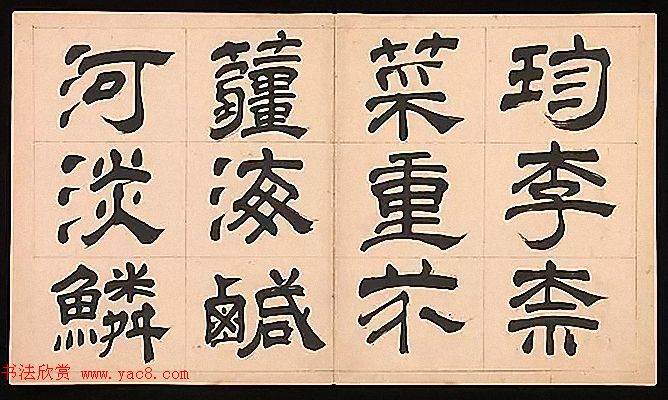 珍李柰
菜重芥
薑海鹹
河淡鱗
书法欣赏 www.yac8.com